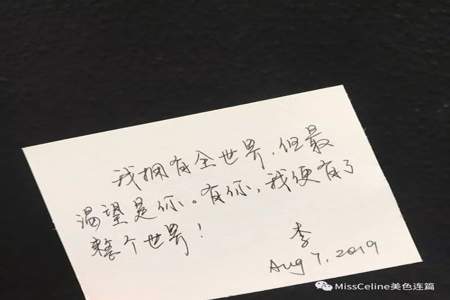 我拥有全世界，但最
渴望是你。有你，我便有了
整个世界！
李
Aug 7, 2019
MissCeline美色连篇